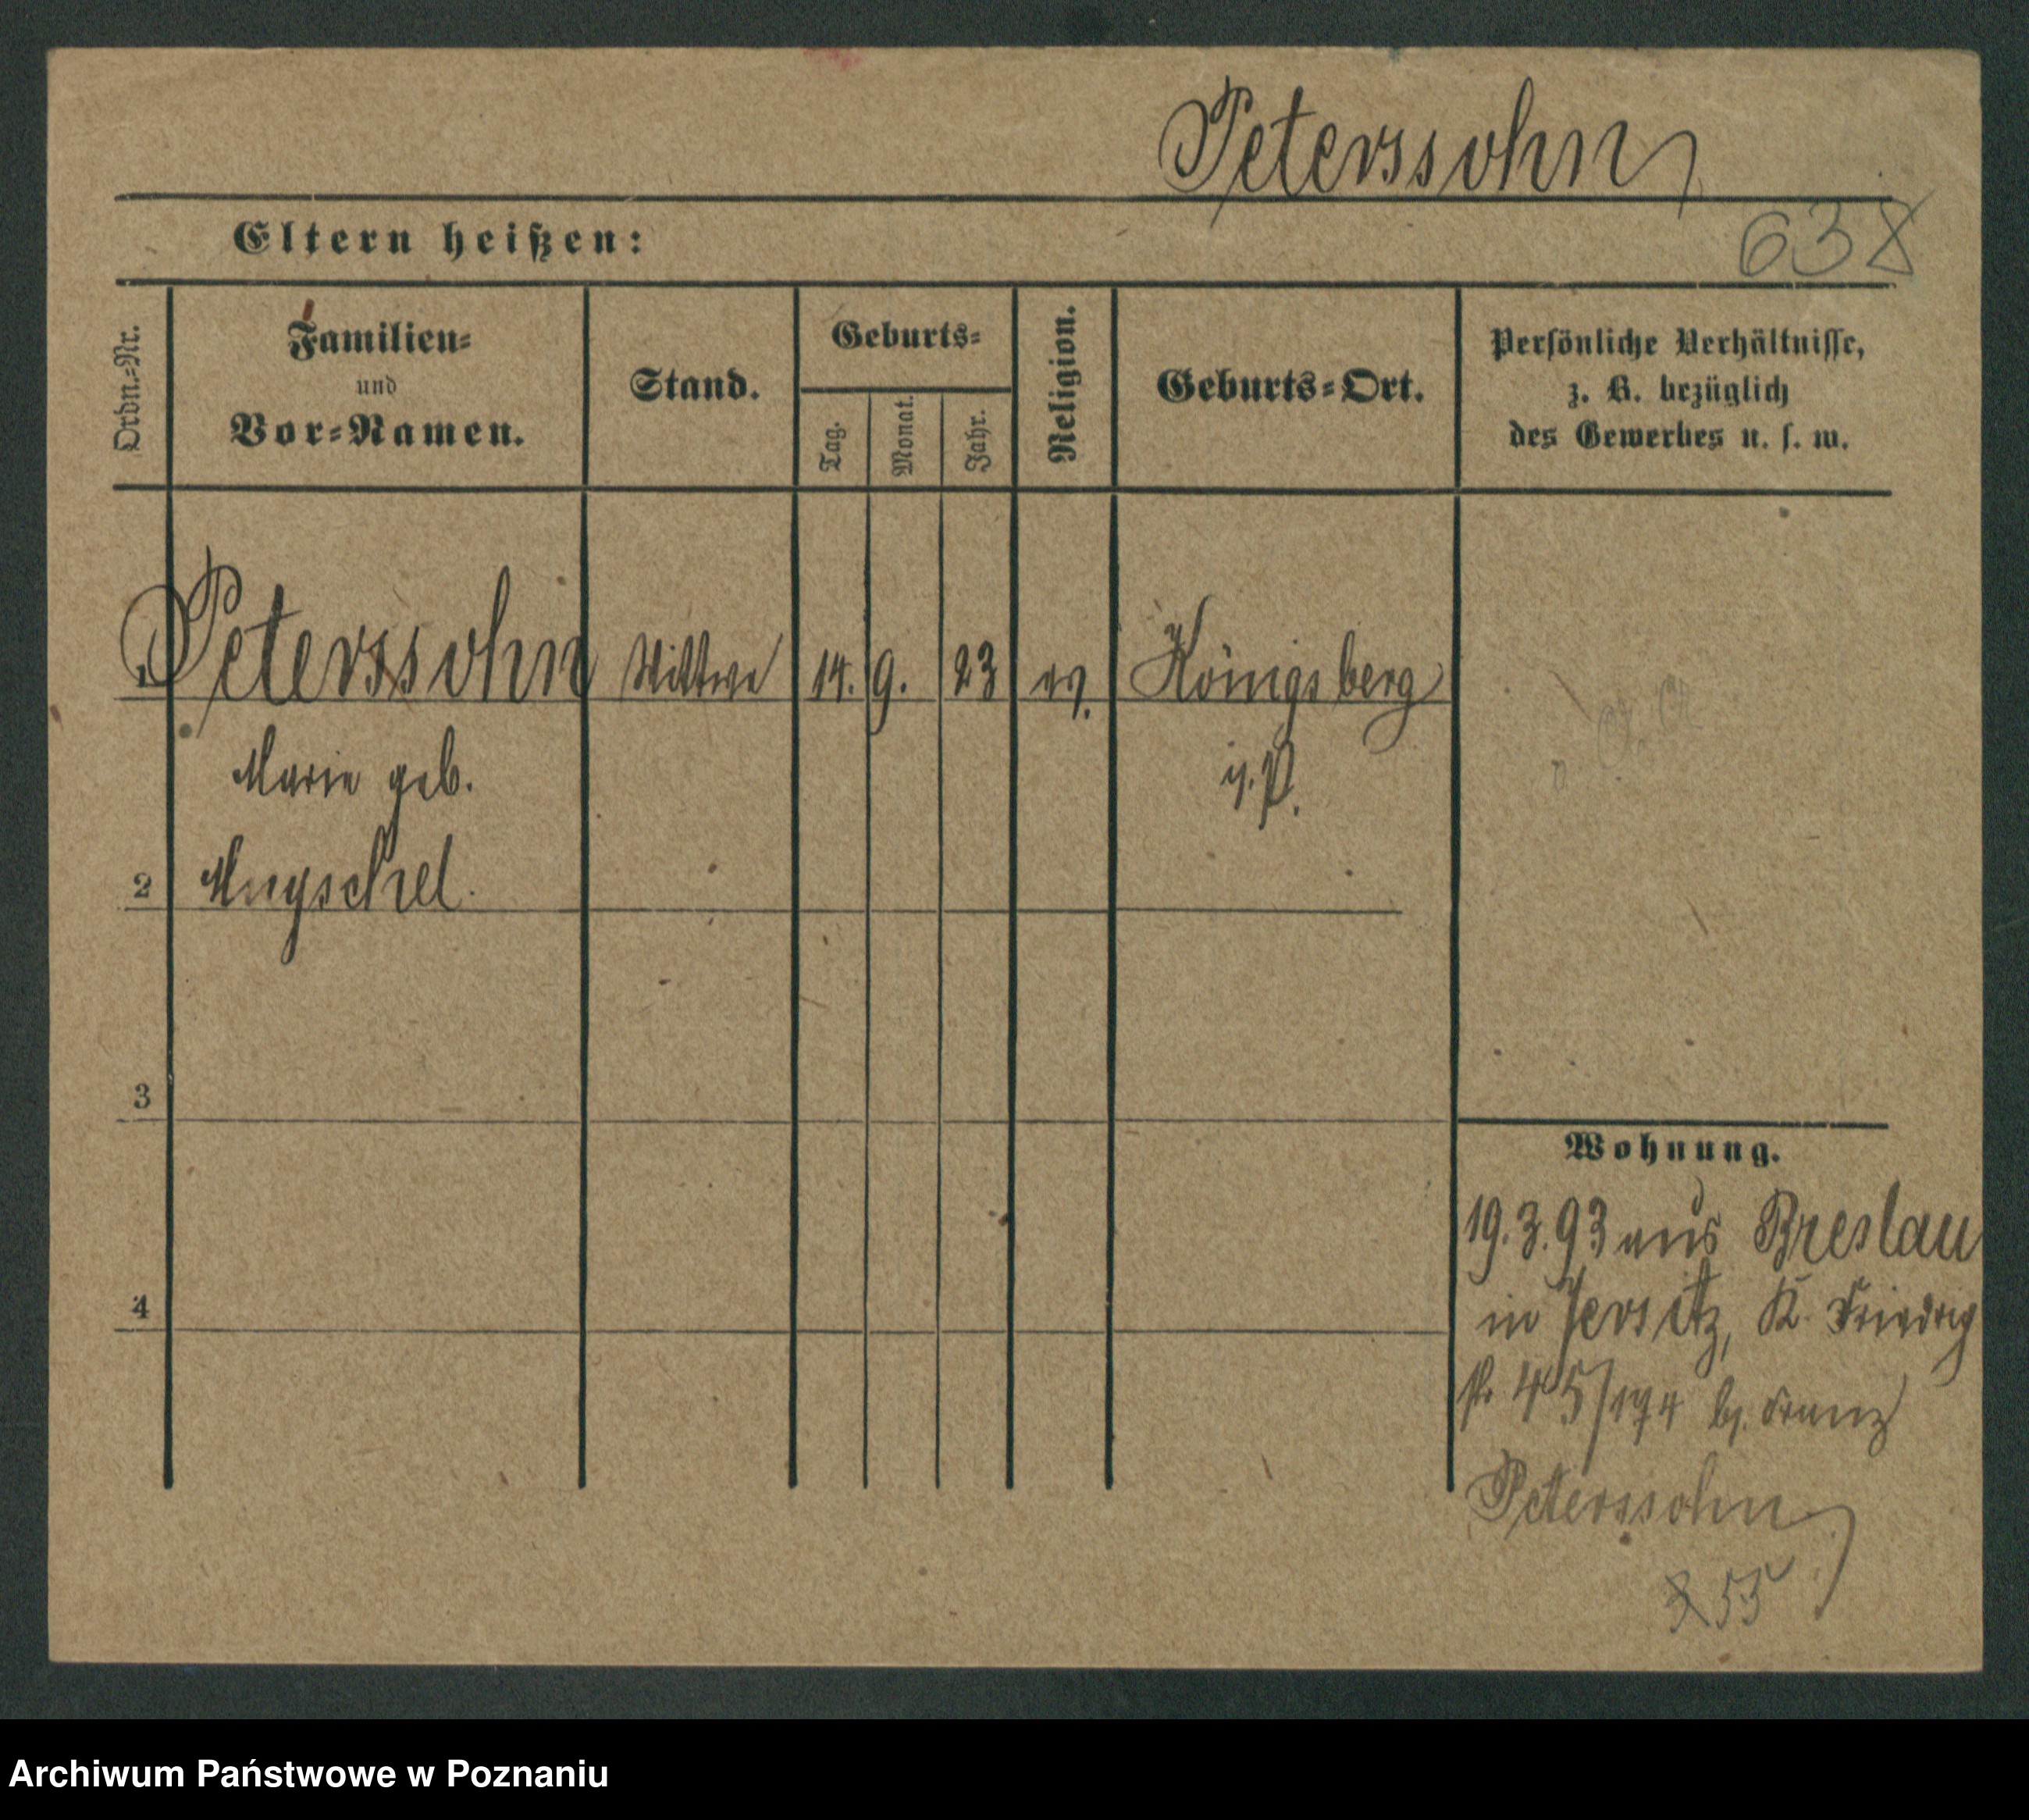 Peterssohn
Eltern heißen:
638
Ordn.=Nr.
Familien=
und
Vor=Namen.
Stand.
Geburts=
Tag.
Monat.
Jahr.
Religion.
Geburts=Ort.
Persönliche Verhältnisse,
z. B. bezüglich
des Gewerbes u. s. w.
1 Peterssohn Wittwe 14. 9. 23 ev. Königsberg
Marie geb. i. P.
2
3
4
Wohnung.
19.3.93 aus Breslau
in Jersitz, K. Friedrig
Str 45/194 b. Franz
Peterssohn
55
Archiwum Państwowe w Poznaniu